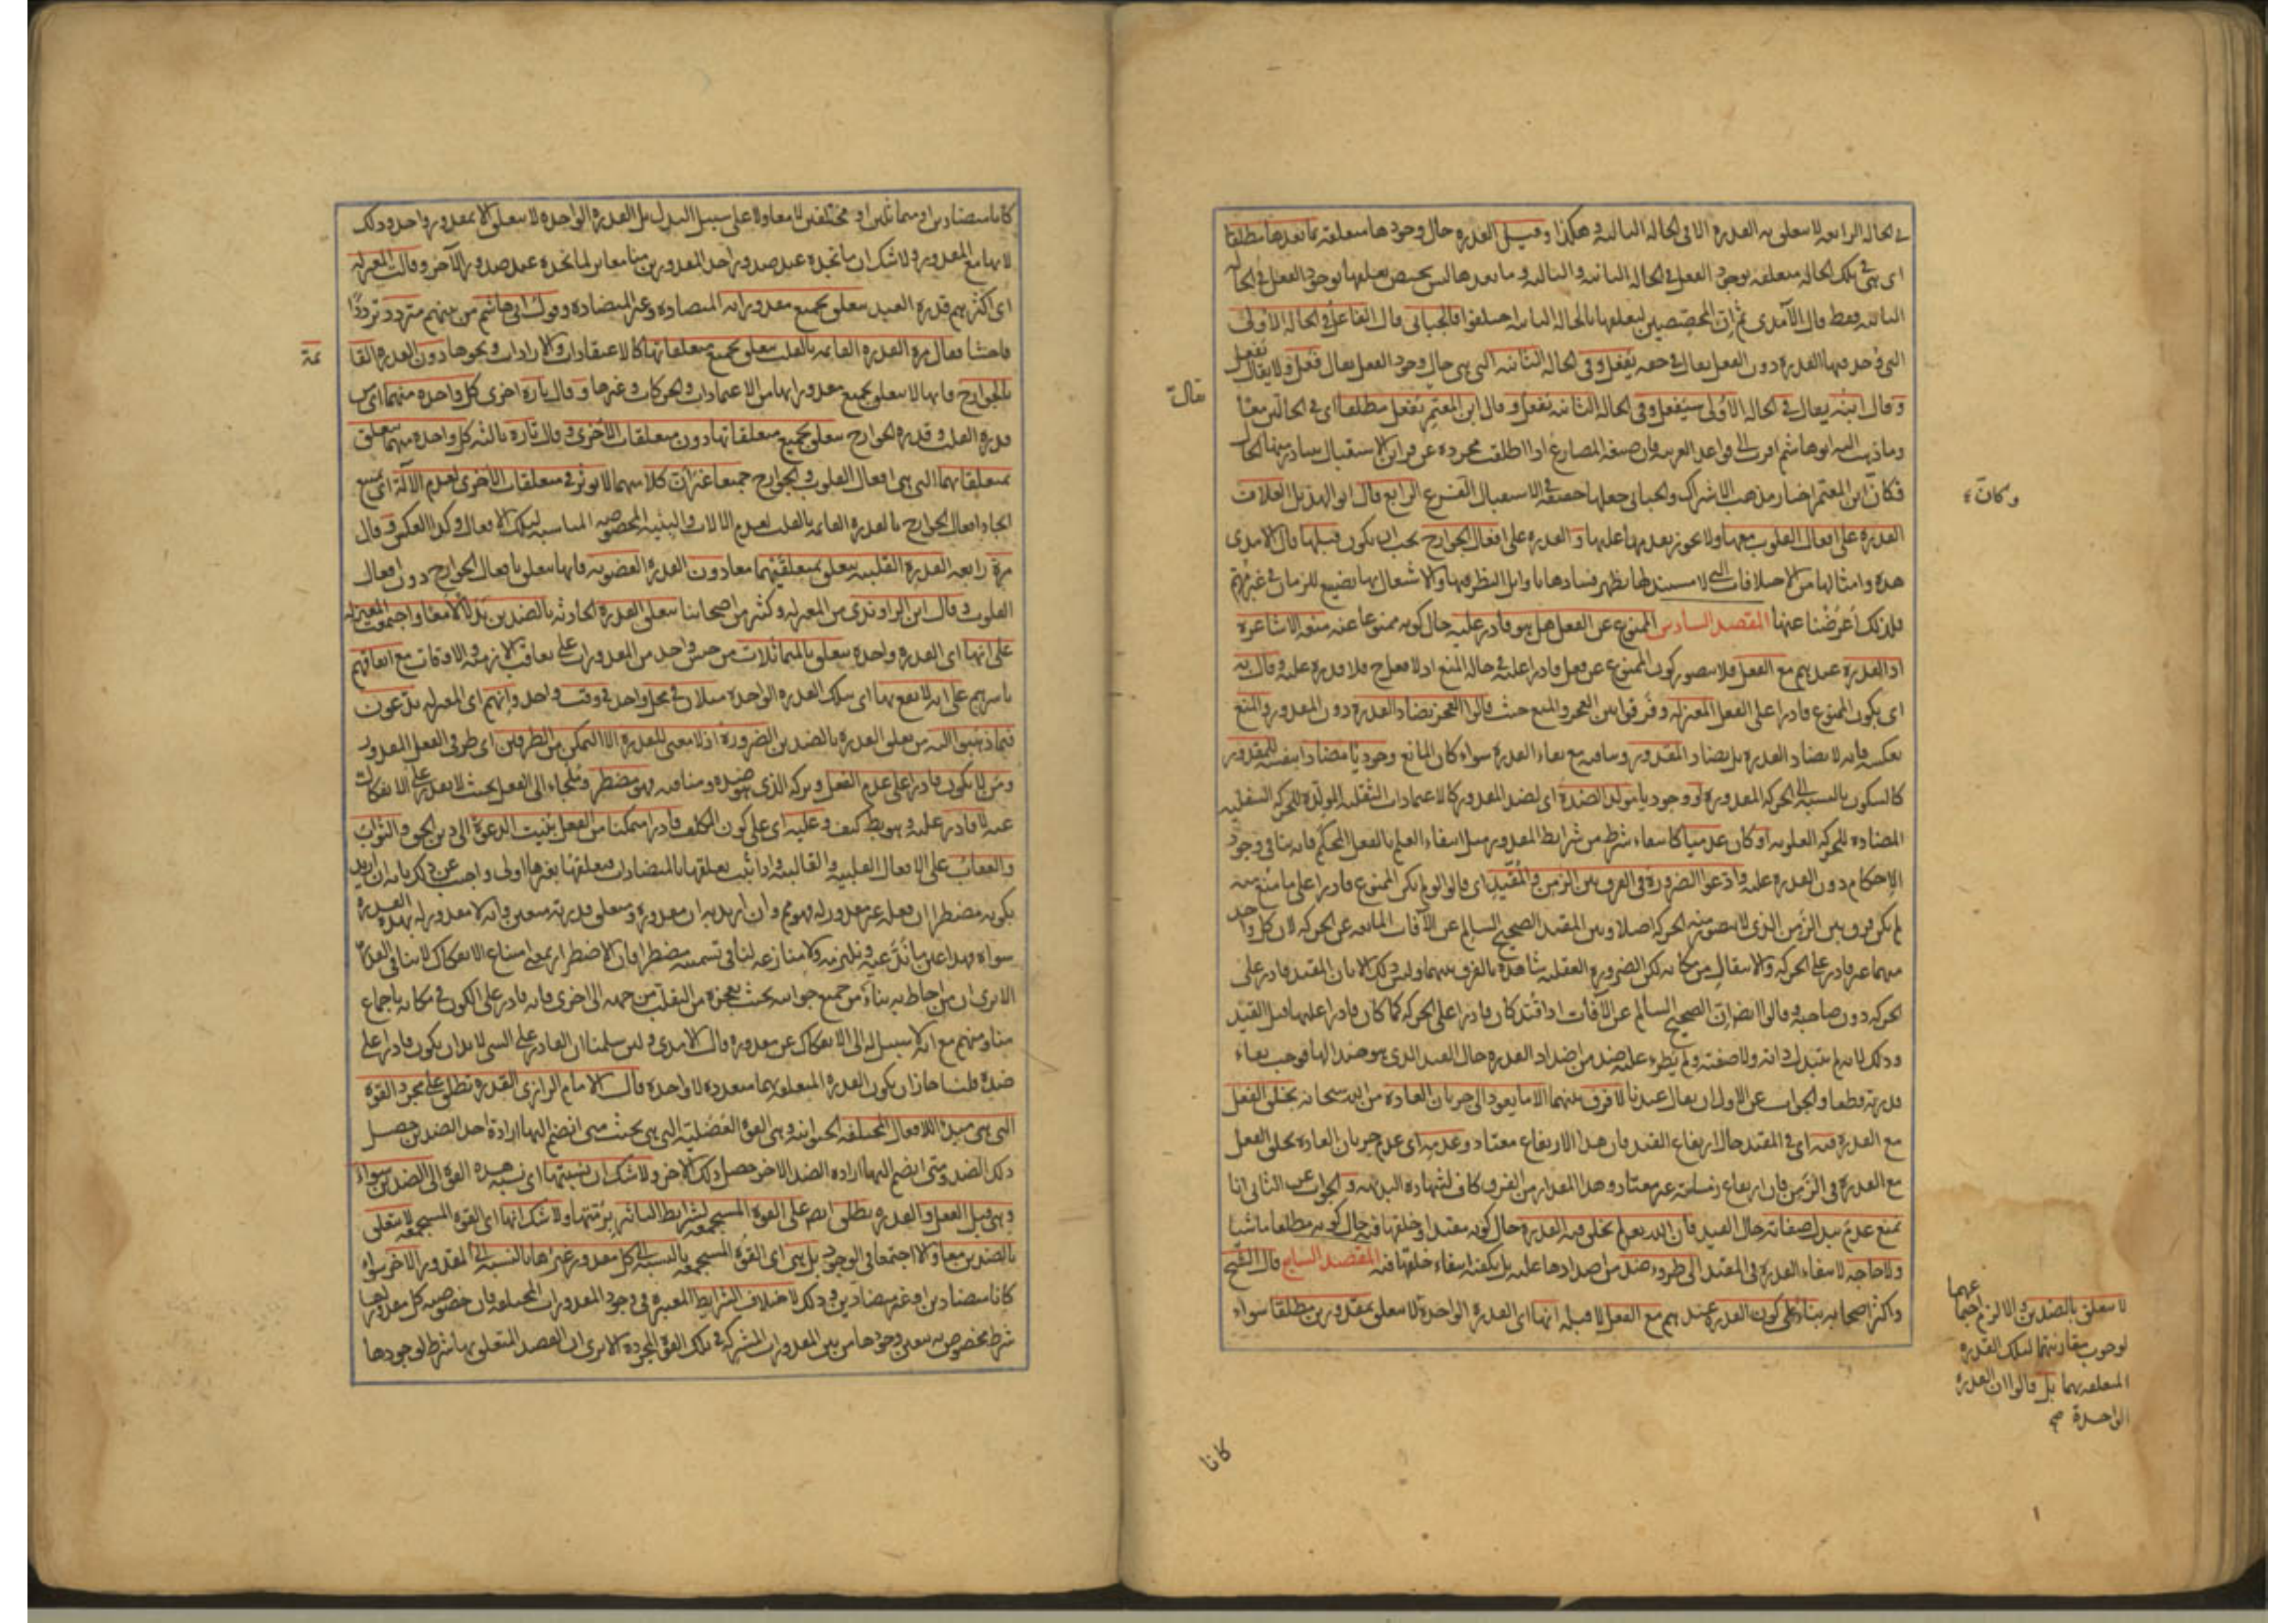 في الحالة الرابعة لا يتعلق به القدرة الا في الحالة الثالثة وهكذا وقيل القدرة حال وجودها متعلقة بما بعدها مطلقا
اى هى في تلك الحالة متعلقة بوجود الفعل في الحالة الثانية والثالثة وما بعدها ليس يختص تعلقها بوجود الفعل في الحالة
الثانية فقط قال الآمدى ثم ان المخصصين لتعلقها بالحالة الثانية اختلفوا فالجبائى قال الفاعل في الحالة الاولى
التى وجد فيها القدرة دون الفعل يقال في حقه يفعل وفى الحالة الثانية التى هى حال وجود الفعل يقال فعل ولا يقال يفعل
وقال ابنه يقال في الحالة الاولى سيفعل وفى الحالة الثانية يفعل وقال ابن المعتمر يفعل مطلقا اى في الحالتين معا
وما ذهب اليه ابو هاشم اقرب الى قواعد العربية فان صيغة المضارع اذا اطلقت مجردة عن قرائن الاستقبال يتبادر منها الحال
فكان ابن المعتمر اختار مذهب الاشتراك والجبائى جعلها حقيقة في الاستقبال الفرع الرابع قال ابو الهذيل العلاف
القدرة على افعال القلوب معها ولا يجوز تقدمها عليها والقدرة على افعال الجوارح يجب ان يكون قبلها قال الآمدى
هذه وامثالها من الاختلافات التى لا مستند لها يظهر فسادها باوائل النظر فيها والاشتغال بها تضييع للزمان في غير مهم
فلذلك اعرضنا عنها المقصد السادس الممنوع عن الفعل هل هو قادر عليه حال كونه ممنوعا عنه منعه الاشاعرة
اذ القدرة عندهم مع الفعل فلا يتصور كون الممنوع عن فعل قادرا عليه في حالة المنع اذ لا فعل ح فلا قدرة عليه وقال به
اى بكون الممنوع قادرا على الفعل المعتزلة وفرقوا بين العجز والمنع حيث قالوا العجز يضاد القدرة دون المقدور والمنع
بعكسه فانه لا يضاد القدرة بل يضاد المقدور وينافيه مع بقاء القدرة سواء كان المانع وجوديا مضادا بنفسه للمقدور
كالسكون بالنسبة الى الحركة المقدورة او وجوديا مولدا لضده اى لضد المقدور كالاعتمادات الثقيلة المولدة للحركة السفلية
المضادة للحركة العلوية او كان عدميا كانتفاء شرط من شرائط المقدور مثل انتفاء العلم بالفعل المحكم فانه ينافى وجود
الاحكام دون القدرة عليه وادعوا الضرورة في الفرق بين الزمن والمقيد اى قالوا لو لم يكن الممنوع قادرا على ما منع منه
لم يكن فرق بين الزمن الذى لا يتصور منه الحركة اصلا وبين المقيد الصحيح السالم عن الآفات المانعة عن الحركة لان كل واحد
منهما غير قادر على الحركة والانتقال من مكانه لكن الضرورة العقلية شاهدة بالفرق بينهما وليس ذلك الا بان المقيد قادر على
الحركة دون صاحبه وقالوا ايضا ان الصحيح السالم عن الآفات اذا قيد كان قادرا على الحركة كما كان قادرا عليها قبل القيد
وذلك لانه لم يتبدل ذاته ولا صفته ولم يطرء عليه ضد من اضداد القدرة حال القيد الذى هو ضد لها فوجب بقاء
قدرته قطعا والجواب عن الاول ان يقال عندنا لا فرق بينهما الا ما يعود الى جريان العادة من الله سبحانه بخلق الفعل
مع القدرة فيه اى في المقيد حال ارتفاع القيد فان هذا الارتفاع معتاد وعدمه اى عدم جريان العادة بخلق الفعل
مع القدرة في الزمن فان ارتفاع زمانته غير معتاد وهذا المقدار من الفرق كاف لشهادة البديهة والجواب عن الثانى انا
نمنع عدم تبدل صفاته حال القيد فان الله تعالى لم يخلق فيه القدرة حال كونه مقيدا وخلقها فيه حال كونه مطلقا ماشيا
ولا حاجة لانتفاء القدرة في المقيد الى طروء ضد من اضدادها عليه بل يكفيه انتفاء خلقها فيه المقصد السابع قال الشيخ
واكثر اصحابه بناء على كون القدرة عندهم مع الفعل لا قبله انها اى القدرة الواحدة لا تتعلق بمقدورين مطلقا سواء
وكان
قال
لا يتعلق بالضدين والا لزم اجتماعهما
لوجوب مقارنتهما لتلك القدرة
المتعلقة بهما بل قالوا ان القدرة
الواحدة صح
كانا
كانا متضادين او متماثلين او مختلفين لا معا ولا على سبيل البدل بل القدرة الواحدة لا تتعلق الا بمقدور واحد وذلك
لانها مع المقدور ولا شك ان ما نجده عند صدور احد المقدورين منا مغاير لما نجده عند صدور الآخر وقالت المعتزلة
اى اكثرهم قدرة العبد تتعلق بجميع مقدوراته المتضادة وغير المتضادة وقول ابى هاشم من بينهم متردد ترددا
فاحشا فقال مرة القدرة القائمة بالقلب تتعلق بجميع متعلقاتها كالاعتقادات والارادات ونحوها دون القدرة القا
ئمة
بالجوارح فانها لا تتعلق بجميع مقدوراتها من الاعتمادات والحركات وغيرها وقال تارة اخرى كل واحدة منهما اى من
قدرة القلب وقدرة الجوارح تتعلق بجميع متعلقاتها دون متعلقات الاخرى وقال تارة ثالثة كل واحدة منهما تتعلق
بمتعلقاتهما التى هى افعال القلوب والجوارح جميعا غير ان كلا منهما لا يؤثر في متعلقات الاخرى لعدم الآلة اى يمتنع
ايجاد افعال الجوارح بالقدرة القائمة بالقلب لعدم الآلات والبنية المخصوصة المناسبة لتلك الافعال وكذا العكس وقال
مرة رابعة القدرة القلبية تتعلق بمتعلقيهما معا دون القدرة العضوية فانها تتعلق بافعال الجوارح دون افعال
القلوب وقال ابن الراوندى من المعتزلة وكثير من اصحابنا تتعلق القدرة الحادثة بالضدين بدلا لا معا واجتمعت المعتزلة
على انها اى القدرة واحدة تتعلق بالمتماثلات من جنس واحد من المقدورات على تعاقب الازمنة والاوقات مع اتفاقهم
باسرهم على انه لا يقع بها اى بتلك القدرة الواحدة مثلان في محل واحد في وقت واحد وانهم اى المعتزلة يدعون
فيما ذهبوا اليه من تعلق القدرة بالضدين الضرورة اذ لا معنى للقدرة الا التمكن من الطرفين اى طرفى الفعل المقدور
ومن لا يكون قادرا على عدم الفعل وتركه الذى هو ضده ومنافيه فهو مضطر وملجاء الى الفعل بحيث لا يقدر على الانفكاك
عنه لا قادر عليه وهو بط كيف وعليه اى على كون المكلف قادرا متمكنا من الفعل بنيت الدعوة الى دين الحق والثواب
والعقاب على الافعال القلبية والقالبية واذا ثبت تعلقها بالمتضادات فتعلقها بغيرها اولى واجيب عن ذلك بانه ان اريد
بكونه مضطرا ان فعله غير مقدور له فهو مم وان اريد به ان مقدوره ومتعلق قدرته متعين فانه لا مقدور له بهذه القدرة
سواه فهذا عين ما ندعيه ونلتزمه ولا منازعة لنا في تسميته مضطرا فان الاضطرار بمعنى امتناع الانفكاك لا ينافى القدرة
الا ترى ان من احاط به بناء من جميع جوانبه بحيث يعجزه من التقلب من جهة الى اخرى فانه قادر على الكون في مكانه باجماع
منا ومنهم مع انه لا سبيل له الى الانفكاك عن مقدوره قال الآمدى ولئن سلمنا ان القادر على الشى لا بد ان يكون قادرا على
ضده قلنا جاز ان يكون القدرة المتعلقة بهما متعددة لا واحدة قال الامام الرازى القدرة تطلق على مجرد القوة
التى هى مبدأ للافعال المختلفة الحيوانية وهى القوة العضلية التى هى بحيث متى انضم اليها ارادة احد الضدين حصل
ذلك الضد ومتى انضم اليها ارادة الضد الآخر حصل ذلك الآخر ولا شك ان نسبتها اى نسبة هذه القوة الى الضدين سواء
وهى قبل الفعل والقدرة يطلق ايضا على القوة المستجمعة لشرائط التأثير برمتها ولا شك انها اى القوة المستجمعة لا تتعلق
بالضدين معا والا اجتمعا في الوجود بل هى اى القوة المستجمعة بالنسبة الى كل مقدور غيرها بالنسبة الى المقدور الآخر سواء
كانا متضادين او غير متضادين وذلك لاختلاف الشرائط المعتبرة في وجود المقدورات المختلفة فان خصوصية كل مقدور لها
شرط مخصوص به يتعين وجودها من بين المقدورات المشتركة في تلك القوة المجردة الا ترى ان القصد المتعلق بها شرط لوجودها